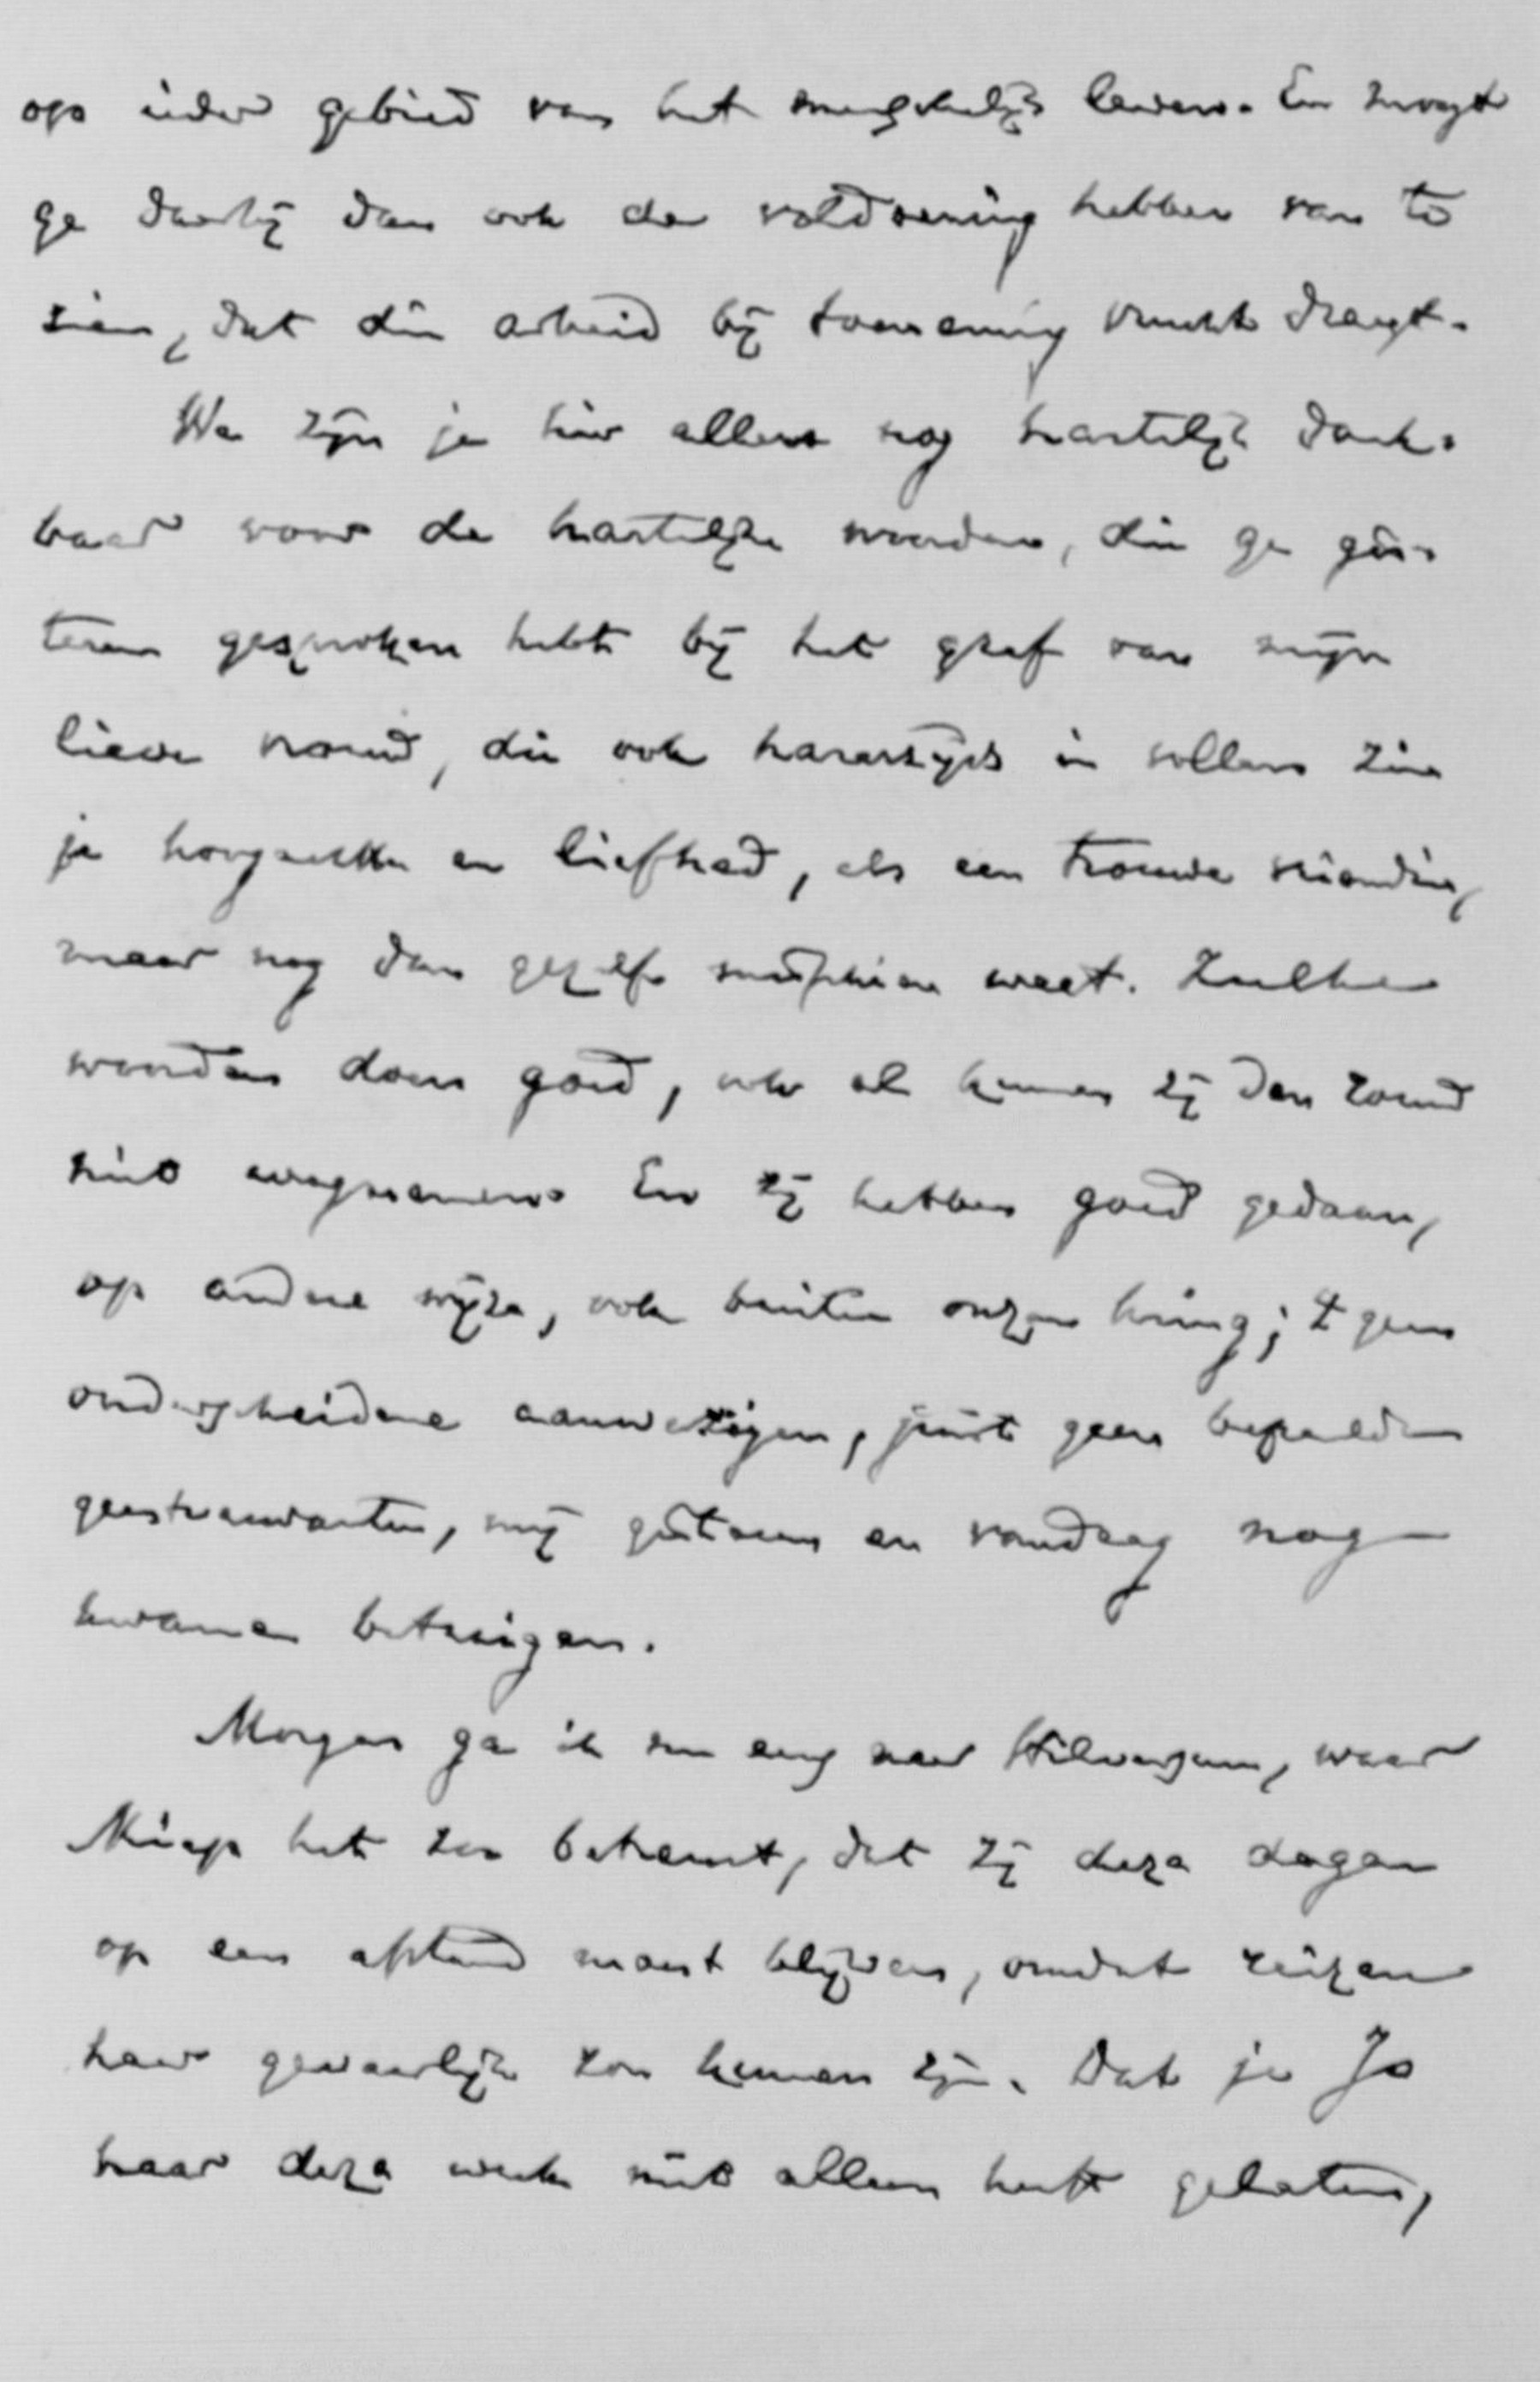 op ieder gebied van het menschelijk leven. En moogt
ge daarbij dan ook de voldoening hebben van te
zien, dat die arbeid bij toeneming vrucht draagt.
We zijn je hier allen nog hartelijk dank-
baar voor de hartelijke woorden, die ge gis-
teren gesproken hebt bij het graf van mijn
lieve vrouw, die ook harerzijds in vollen zin
je hoogachtte en liefhad, als een trouwe vriendin,
meer nog dan gezelf misschien weet. Zulke
woorden doen goed, ook al kunnen zij den rouw
niet wegnemen. En zij hebben goed gedaan,
op andere wijze, ook buiten onzen kring; 't geen
onderscheidene aanwezigen, juist geen bepaalde
geestverwanten, mij gisteren en vandaag nog
kwamen betuigen.
Morgen ga ik nu eerst naar Hilversum, waar
Miep het zoo betreurt, dat zij deze dagen
op een afstand moest blijven, omdat reizen
haar gevaarlijk zou kunnen zijn. Dat je Jo
haar deze week niet alleen heeft gelaten,